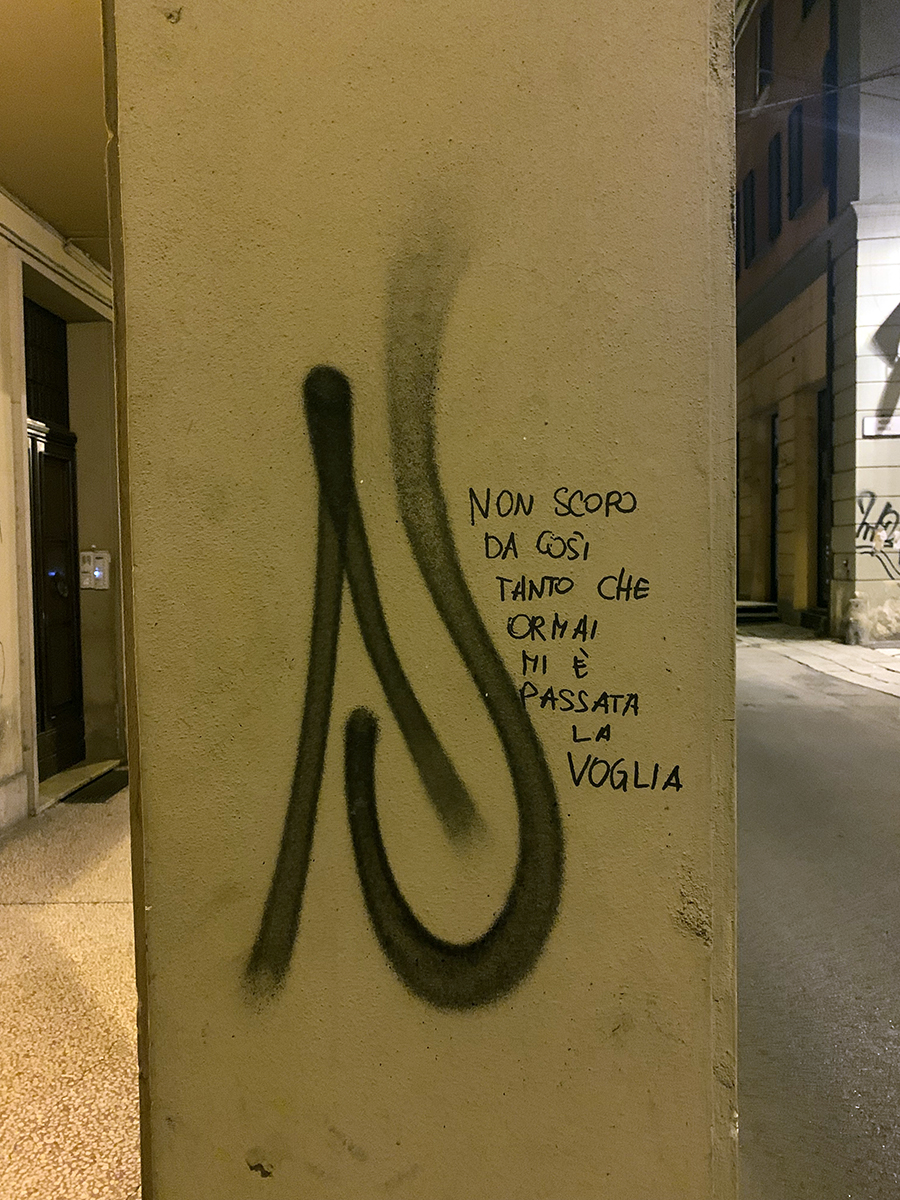 NON SCOPO
DA COSÌ
TANTO CHE
ORMAI
MI È
PASSATA
LA
VOGLIA